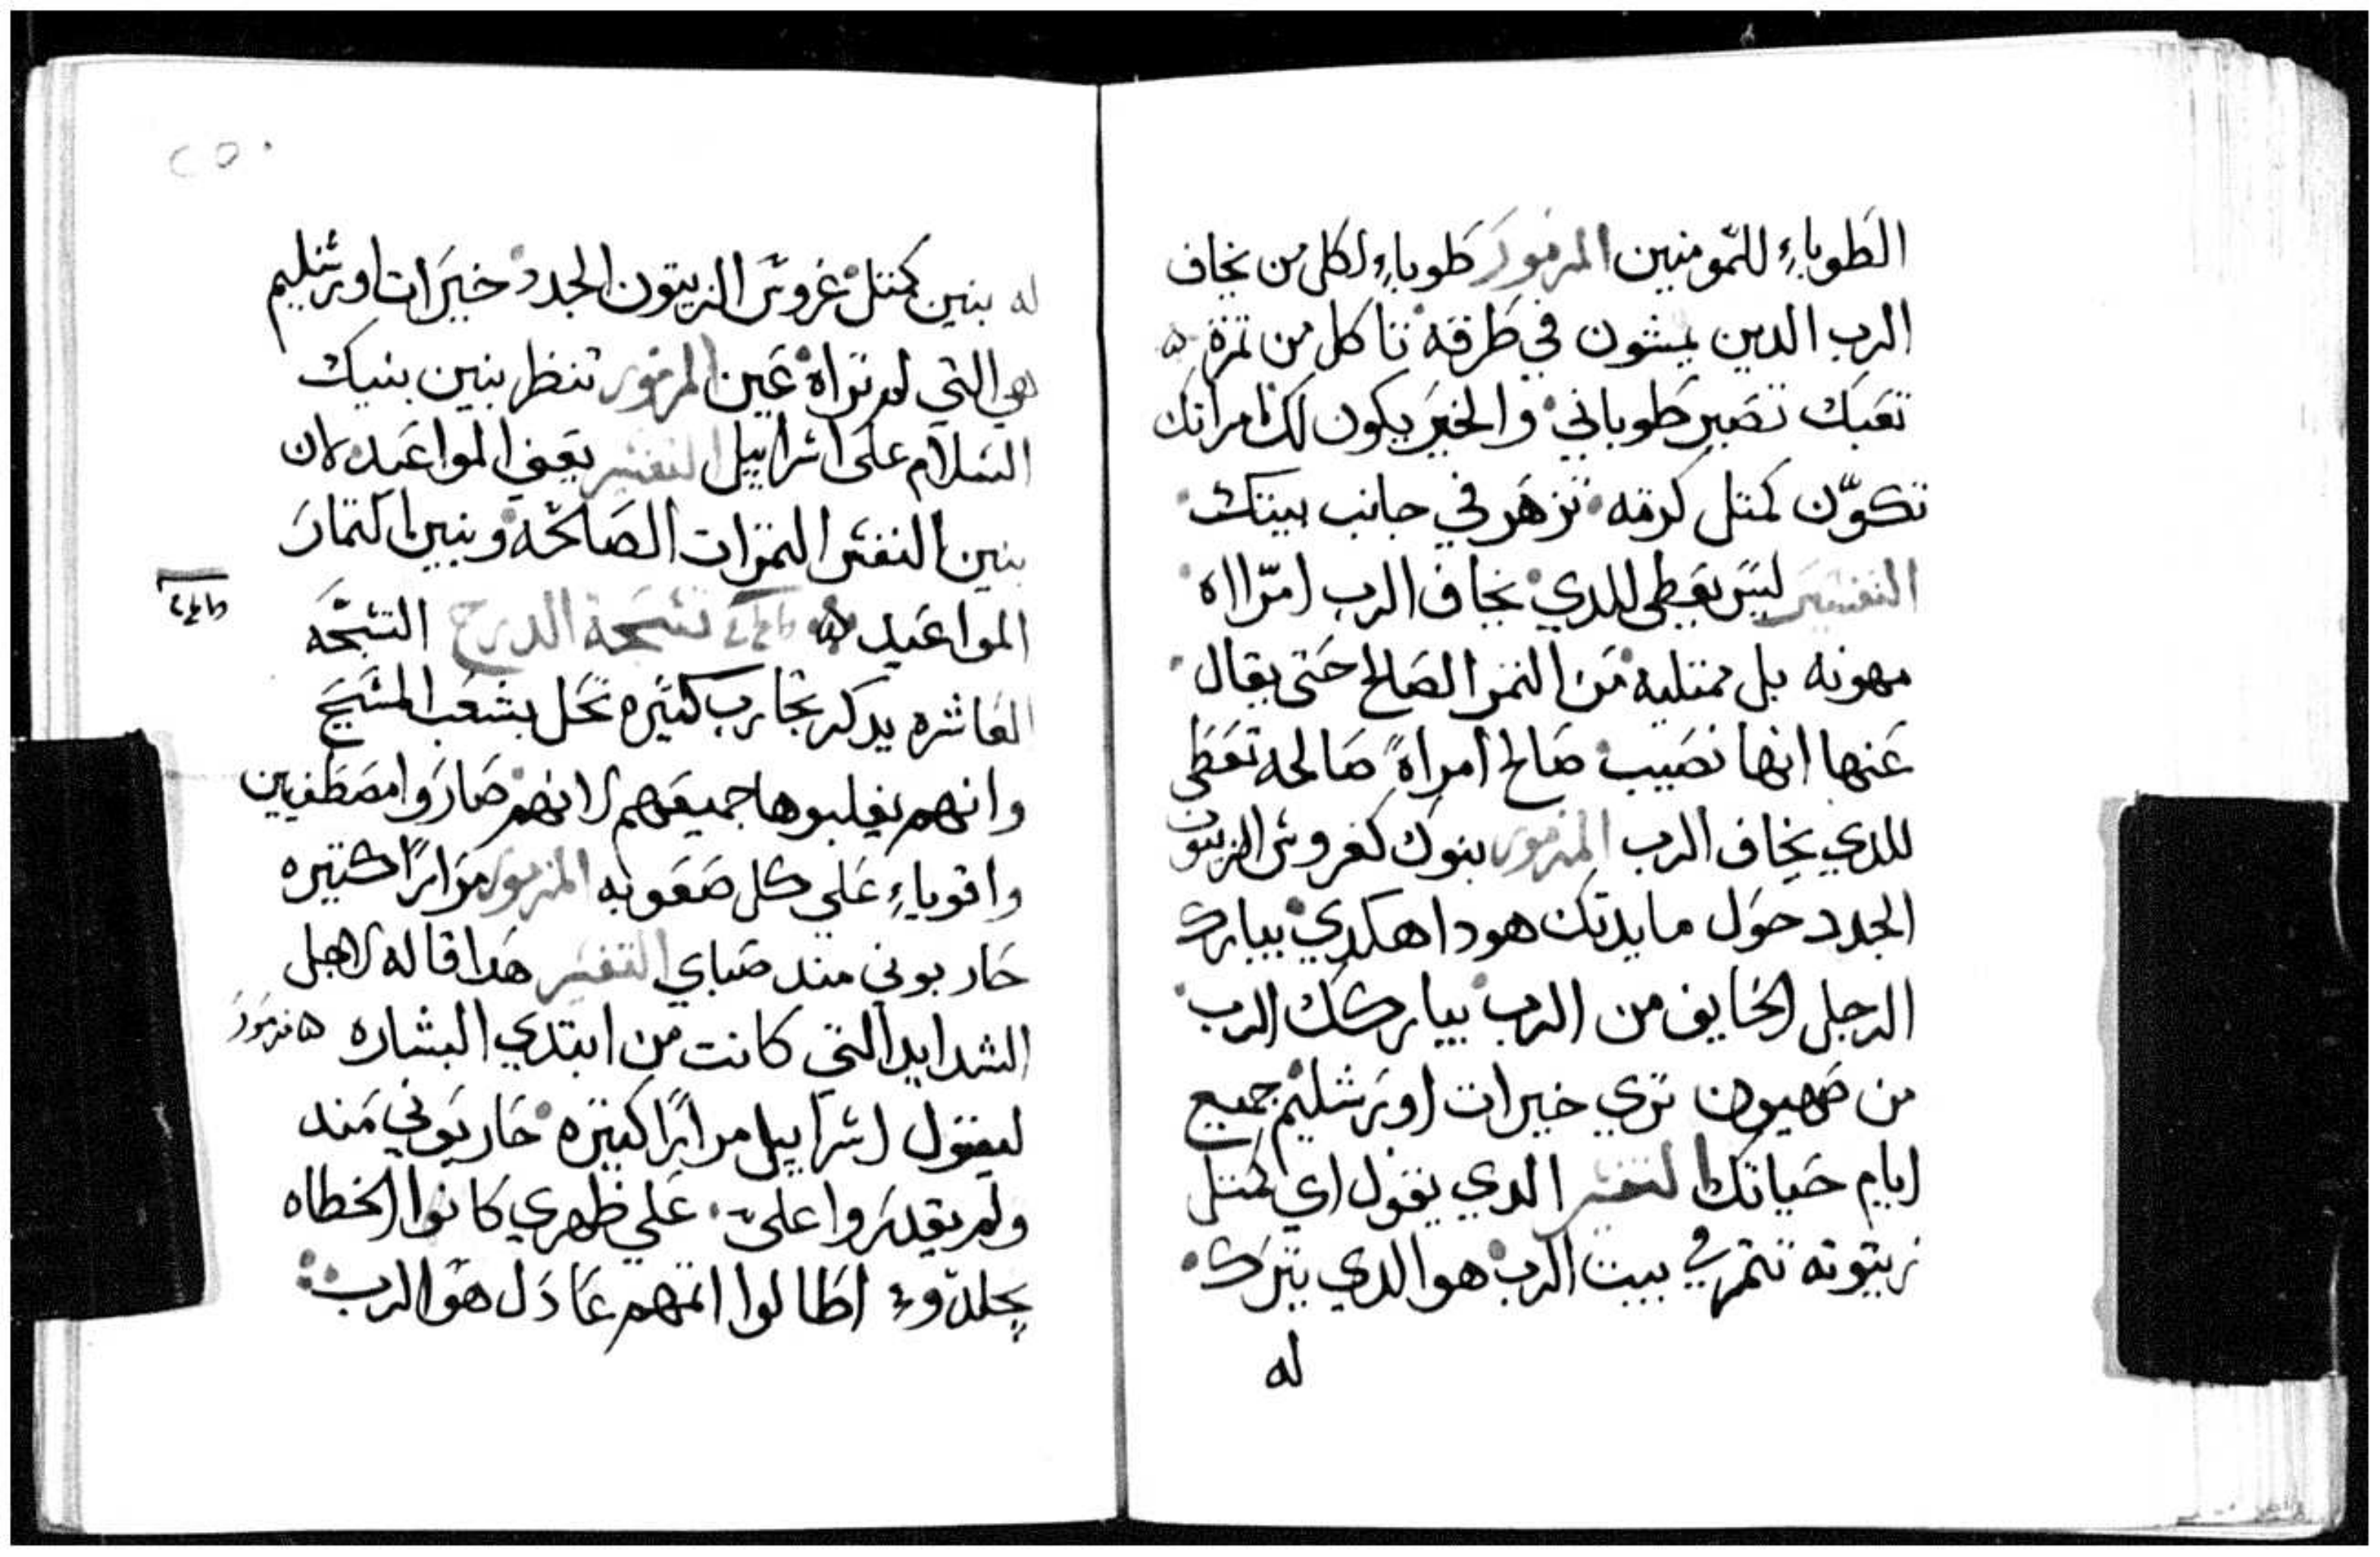 الطوباء للمومنين المزمور طوباء لكل من يخاف
الرب الدين يمشون في طرقه تاكل من تمرة
تعبك تصير طوباني والخير يكون لك امراتك
تكوّن كمتل كرمه تزهر في جانب بيتك
التفسير ليس يعطي للدي يخاف الرب امرااه
مهونه بل ممتليه من التمر الصالح حتى يقال
عنها انها نصيب صالح امراةً صالحه تعطى
للدي يخاف الرب المزمور بنوك كغروس الزيتون
الجدد حول مايدتك هودا هكدي يبارك
الرجل الخايف من الرب يباركك الرب
من صهيون تري خيرات اورشليم جميع
ايام حياتك التفسير الدي يقول اي كمتل
زيتونه تتمر في بيت الرب هو الدي يترك
له
٢٥٠
له بنين كمتل غروس الزيتون الجدد خيرات اورشليم
هي التي لم تراه عين المزمور تنظر بنين بنيك
السلام على اسراييل التفسير يعني المواعيد لان
بنين النفس التمرات الصالحه وبنين التمار
المواعيد تسبحة الدرج التسبحه
العاشره يدكر تجارب كتيره تحل بشعب المسيح
وانهم يغلبوها جميعهم لانهم صاروا مصطفيين
واقوياء علي كل صعوبه المزمور مرارًا كتيره
حاربوني مند صباي التفسير هدا قاله لاجل
الشدايد التي كانت من ابتدي البشاره مزمور
ليقول اسراييل مرارًا كتيره حاربوني مند
ولم يقدروا عليّ علي ظهري كانوا الخطاه
يجلدوء اطالوا اتمهم عادل هو الرب